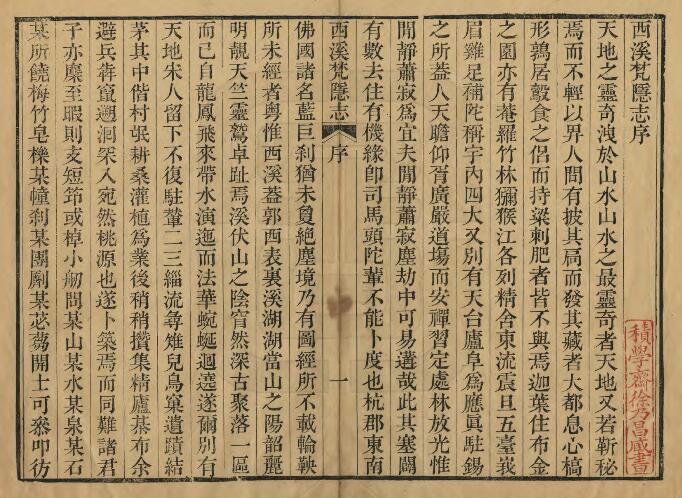 西溪梵隱志序
天地之靈奇洩於山水山水之最靈奇者天地又若靳秘
焉而不輕以界人間有披其扃而發其藏者大都息心槁
形鶉居鷇食之侶而持粱刺肥者皆不與焉迦葉住布金
之園亦有菴羅竹林獼猴江各列精舍東流震旦五臺峩
眉雞足補陀稱宇內四大又別有天台廬阜爲應眞駐錫
之所蓋人天瞻仰胥廣嚴道場而安禪習定處林放光惟
閒靜蕭寂爲宜夫閒靜蕭寂塵劫中可易遘哉此其塞闢
有數去住有機緣卽司馬頭陀輩不能卜度也杭郡東南
西溪梵隱志 序 一
佛國諸名藍巨刹猶未夐絶塵境乃有圖經所不載輪鞅
所未經者粤惟西溪蓋郭西表裏溪湖湖當山之陽韶麗
明靚天竺靈鷲卓趾焉溪伏山之陰窅然深古聚落一區
而已自龍鳳飛來帶水演迤而法華蜿蜒迴遶遂爾別有
天地宋人留下不復駐輦二三緇流尋雉兒鳥窠遺蹟結
茅其中偕村氓耕桑灌植爲業後稍稍攢集精廬棊布余
避兵犇竄遡洄罙入宛然桃源也遂卜築焉而同難諸君
子亦麇至暇則支短筇或棹小舠問某山某水某泉某石
某所饒梅竹皂櫟某幢刹某團劂某苾蒭開士可叅叩彷
積學齋徐乃昌藏書